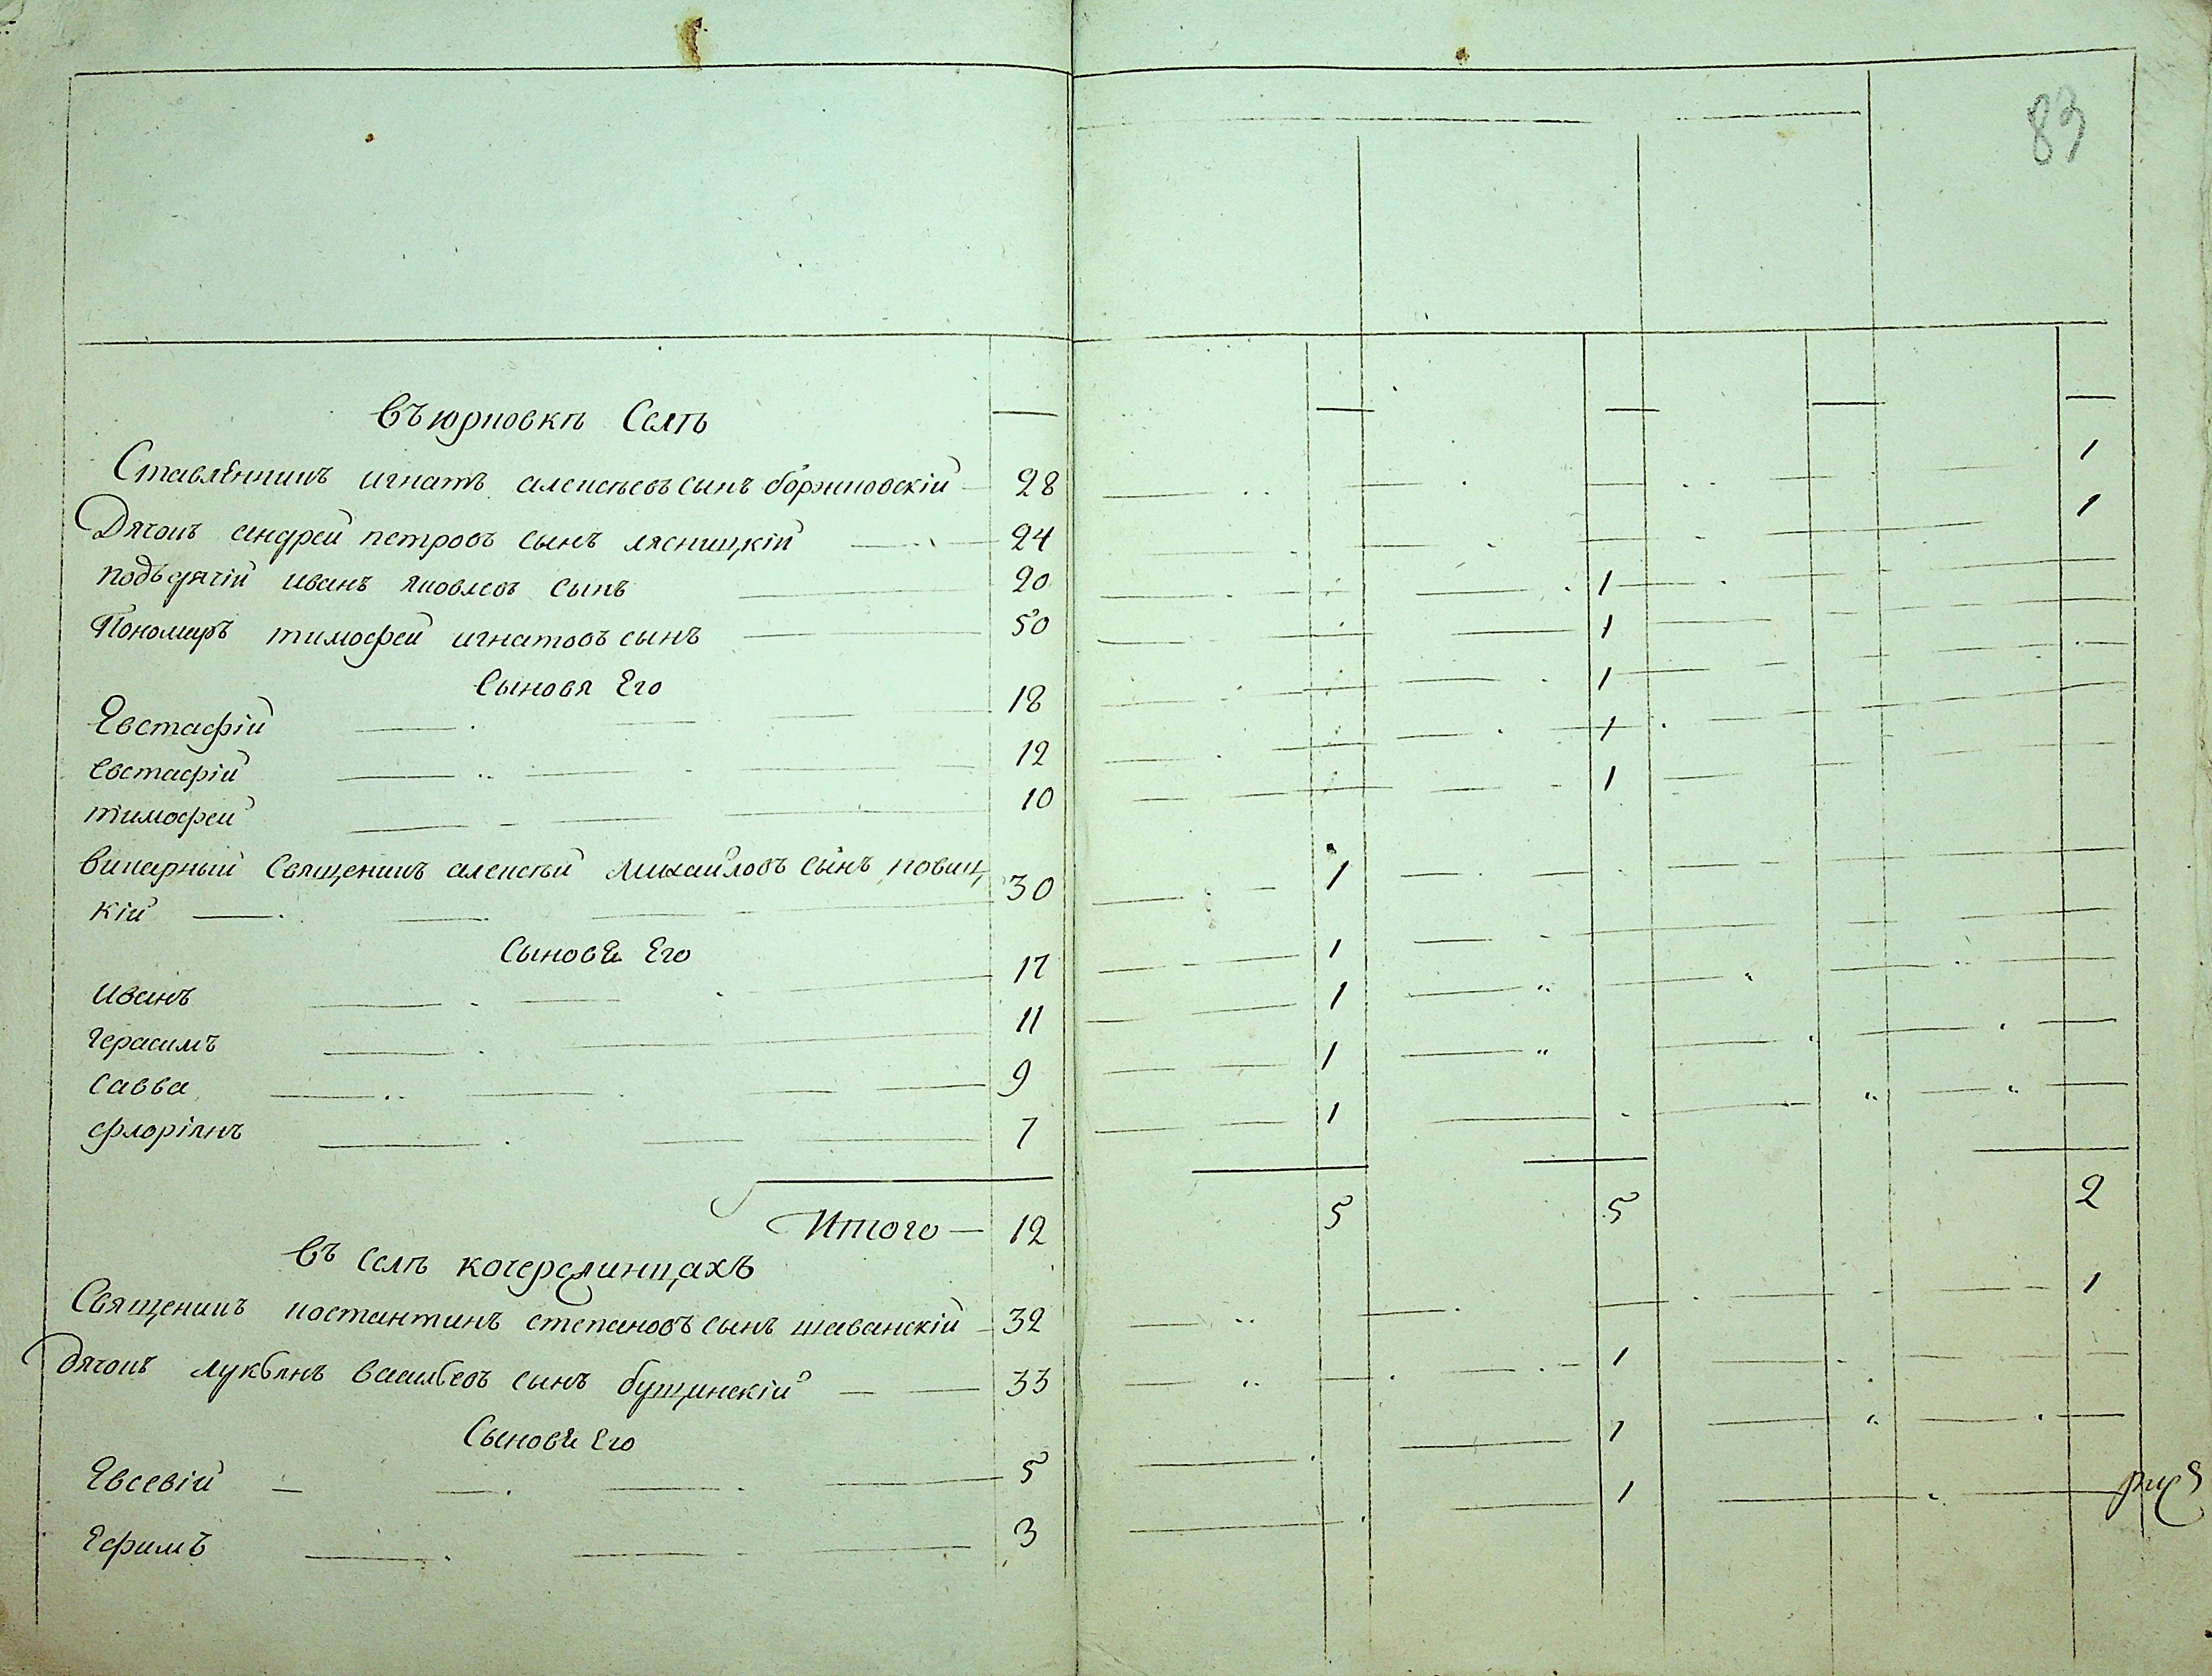 83
въ юрковкѣ Селѣ
Ставленникъ игнатъ алексѣевъ сынъ боржковскій 28 1
Дячокъ андрей петровъ сынъ лясницкій 24 1
подъдячій иванъ яковлевъ сынъ 20 1
Пономаръ тимофей игнатовъ сынъ 50 1
Сыновя Его
Евстафій 18 1
Евстафій 12 1
тимофей 10 1
викарный Священикъ алексѣй Михайловъ сынъ новиц
кій 30 1
Сыновя Его
иванъ 17 1
герасимъ 11 1
савва 9 1
флоріянъ 7 1
Итого 12 5 5 2
въ селѣ кочержинцахъ
Священикъ костантинъ степановъ сынъ шаванскій 32 1
дячокъ лукьянъ васильевъ сынъ бущинскій 33 1
Сыновя Его
Евсевій 5 1
Ефимъ 3 1